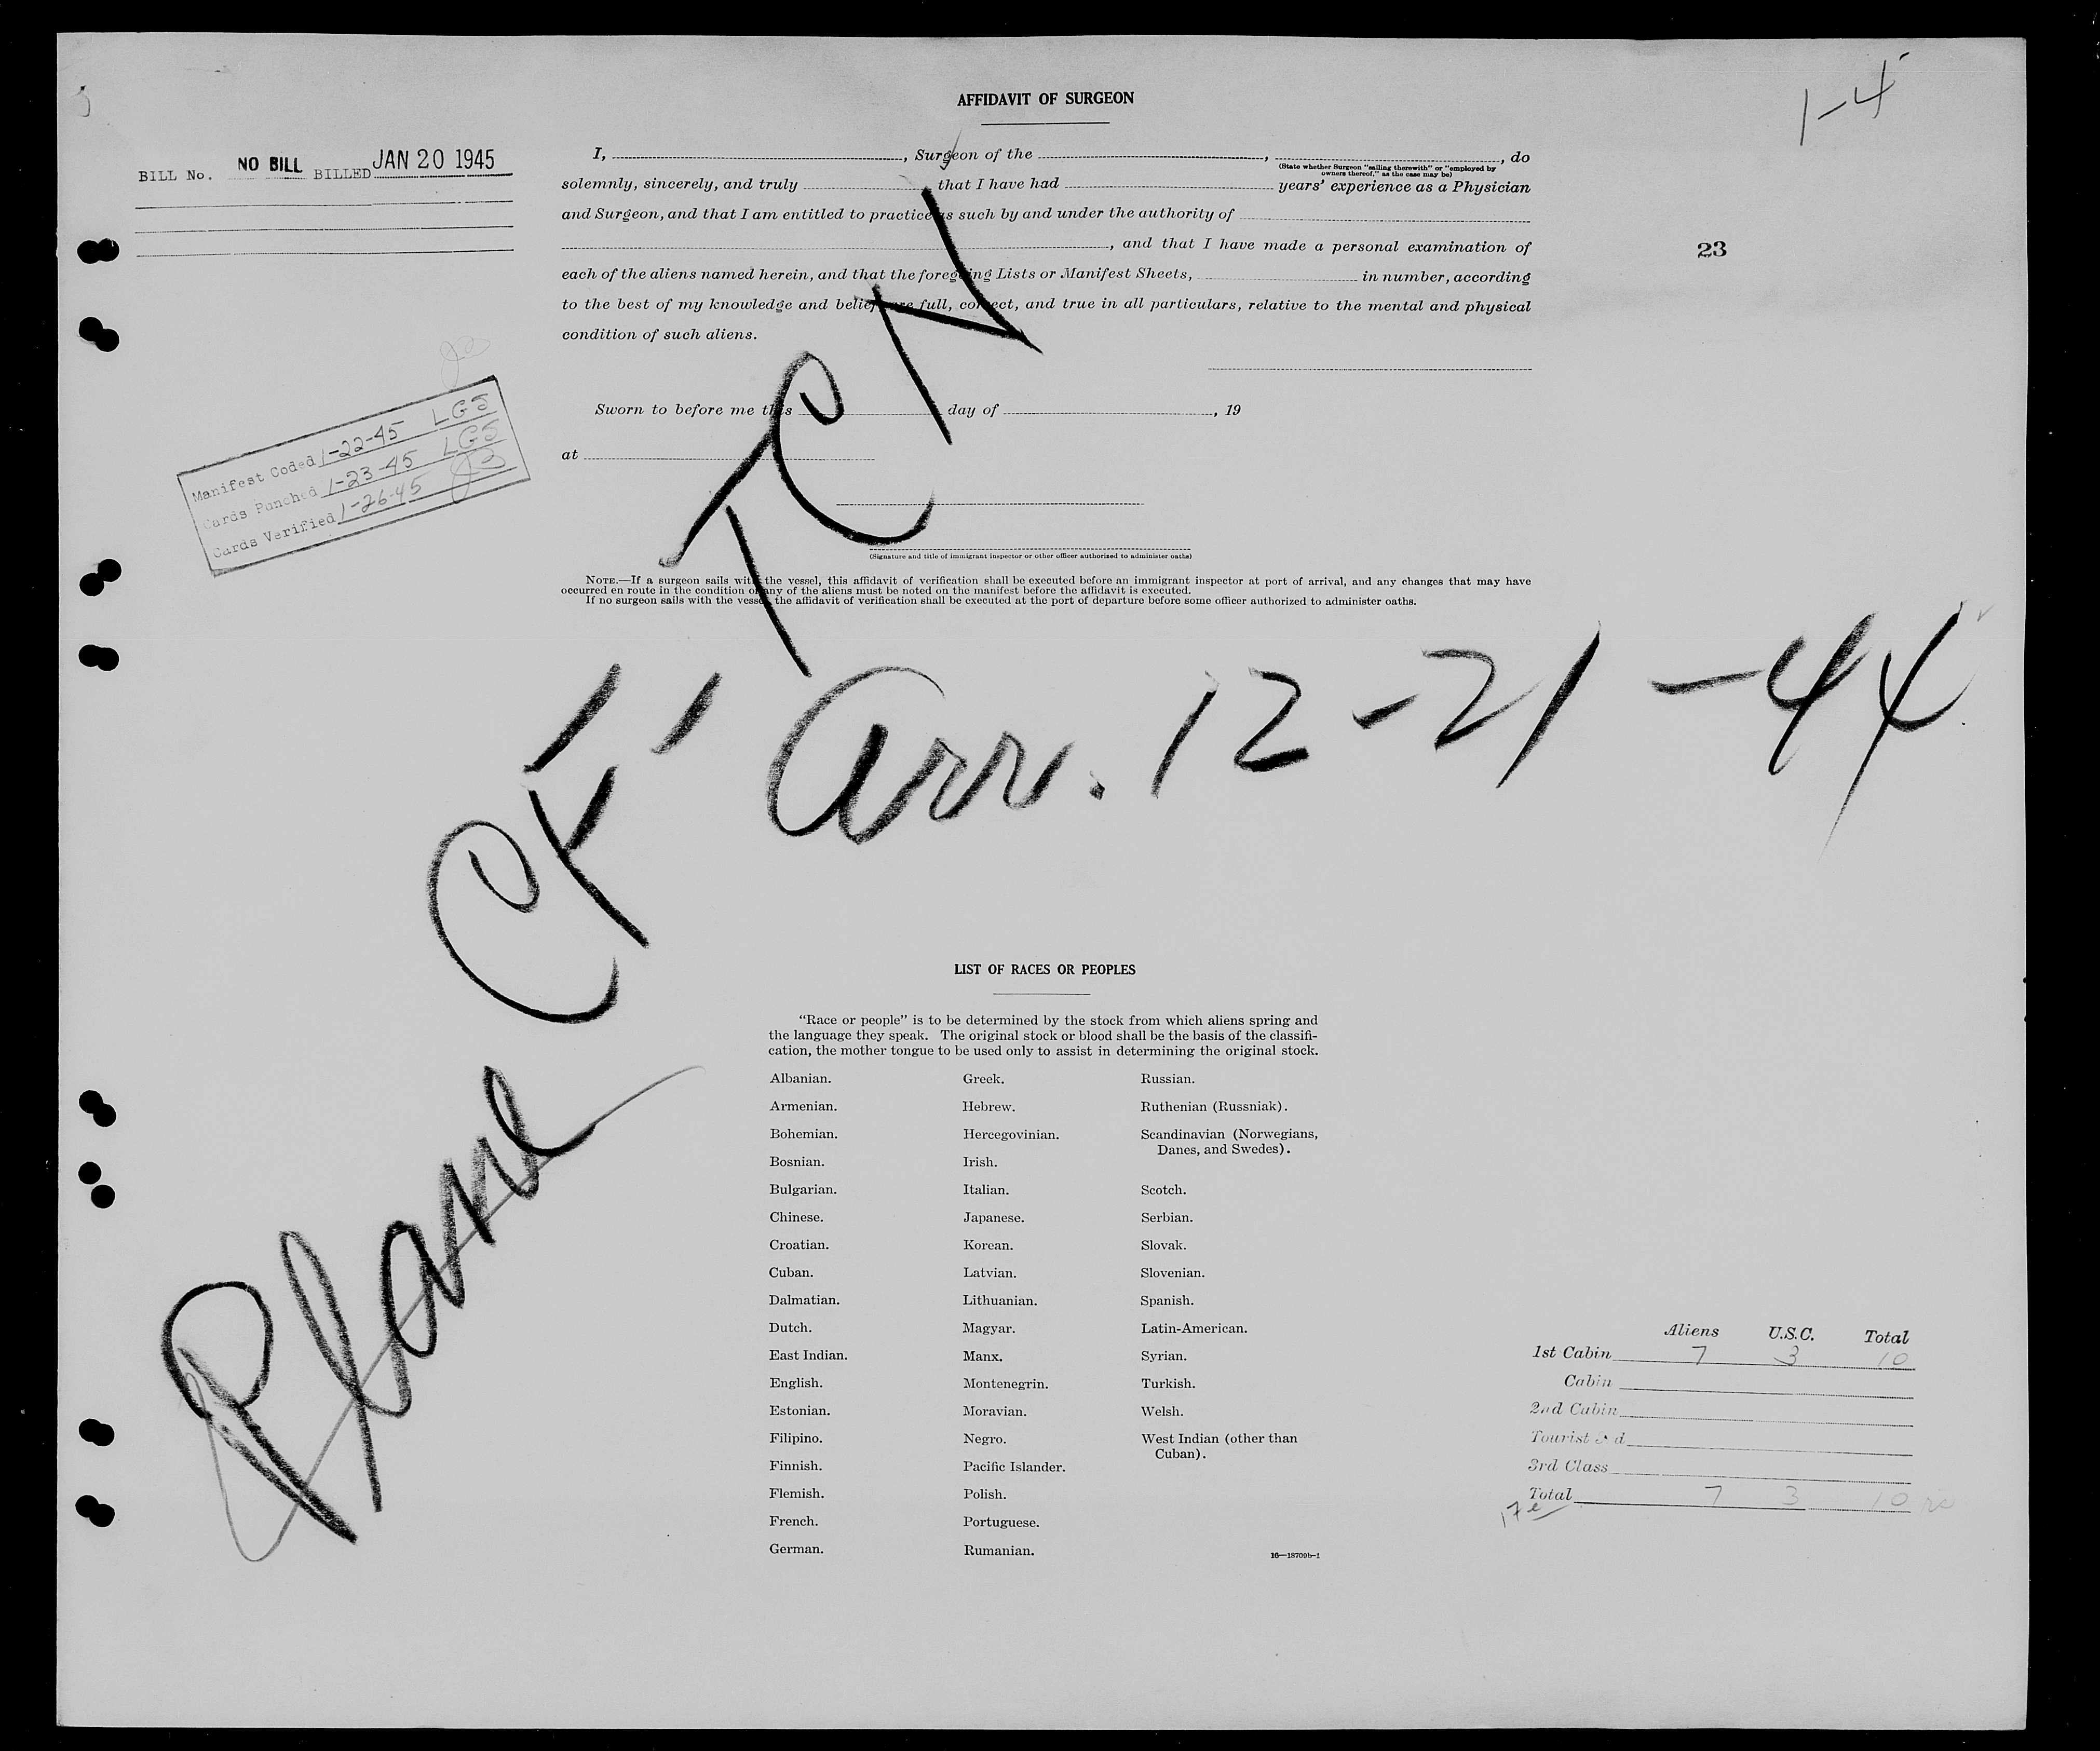 AFFIDAVIT OF SURGEON
1-4
BILL No. NO BILL BILLED JAN 20 1945
I, , Surgeon of the , , do
(State whether Surgeon "sailing therewith" or "employed by
owners thereof," as the case may be)
solemnly, sincerely, and truly that I have had years' experience as a Physician
and Surgeon, and that I am entitled to practice as such by and under the authority of
, and that I have made a personal examination of
23
each of the aliens named herein, and that the foregoing Lists or Manifest Sheets, in number, according
to the best of my knowledge and belief, are full, correct, and true in all particulars, relative to the mental and physical
condition of such aliens.
Sworn to before me this day of , 19
at
(Signature and title of immigrant inspector or other officer authorized to administer oaths)
Manifest Coded 1-22-45 LGS
Cards Punched 1-23-45 LGS
Cards Verified 1-26-45
NOTE.—If a surgeon sails with the vessel, this affidavit of verification shall be executed before an immigrant inspector at port of arrival, and any changes that may have
occurred en route in the condition of any of the aliens must be noted on the manifest before the affidavit is executed.
If no surgeon sails with the vessel, the affidavit of verification shall be executed at the port of departure before some officer authorized to administer oaths.
Plane CF-TCN
arr. 12-21-44
LIST OF RACES OR PEOPLES
"Race or people" is to be determined by the stock from which aliens spring and
the language they speak. The original stock or blood shall be the basis of the classifi-
cation, the mother tongue to be used only to assist in determining the original stock.
Albanian.
Armenian.
Bohemian.
Bosnian.
Bulgarian.
Chinese.
Croatian.
Cuban.
Dalmatian.
Dutch.
East Indian.
English.
Estonian.
Filipino.
Finnish.
Flemish.
French.
German.
Greek.
Hebrew.
Hercegovinian.
Irish.
Italian.
Japanese.
Korean.
Latvian.
Lithuanian.
Magyar.
Manx.
Montenegrin.
Moravian.
Negro.
Pacific Islander.
Polish.
Portuguese.
Rumanian.
Russian.
Ruthenian (Russniak).
Scandinavian (Norwegians,
Danes, and Swedes).
Scotch.
Serbian.
Slovak.
Slovenian.
Spanish.
Latin-American.
Syrian.
Turkish.
Welsh.
West Indian (other than
Cuban).
16—18709b-1
Aliens U.S.C. Total
1st Cabin 7 3 10
Cabin
2nd Cabin
Tourist 3d
3rd Class
Total 7 3 10